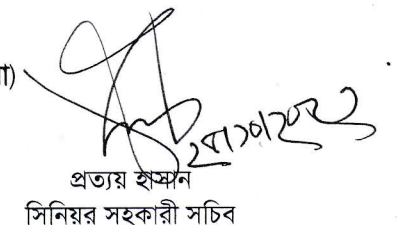 া)
প্রত্যয় হাসান
সিনিয়র সহকারী সচিব